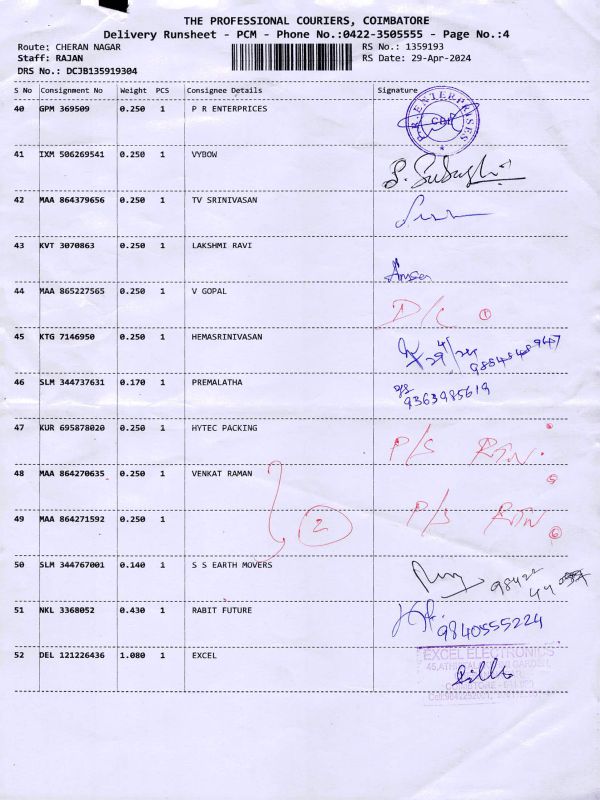 THE PROFESSIONAL COURIERS, COIMBATORE
Delivery Runsheet - PCM - Phone No.:0422-3505555 - Page No.:4
Route: CHERAN NAGAR RS No.: 1359193
Staff: RAJAN RS Date: 29-Apr-2024
DRS No.: DCJB135919304
S No Consignment No Weight PCS Consignee Details Signature
40 GPM 369509 0.250 1 P R ENTERPRICES
P.R. ENTERPRISES
41 IXM 506269541 0.250 1 VYBOW
42 MAA 864379656 0.250 1 TV SRINIVASAN
43 KVT 3070863 0.250 1 LAKSHMI RAVI
44 MAA 865227565 0.250 1 V GOPAL
D/C 1
45 KTG 7146950 0.250 1 HEMASRINIVASAN
46 SLM 344737631 0.170 1 PREMALATHA
9363985619
47 KUR 695878020 0.250 1 HYTEC PACKING
P/S RTN.
48 MAA 864270635 0.250 1 VENKAT RAMAN
5
49 MAA 864271592 0.250 1
2 P/S RTN 6
50 SLM 344767001 0.140 1 S S EARTH MOVERS
51 NKL 3368052 0.430 1 RABIT FUTURE
9840555224
52 DEL 121226436 1.080 1 EXCEL
EXCEL ELECTRONICS